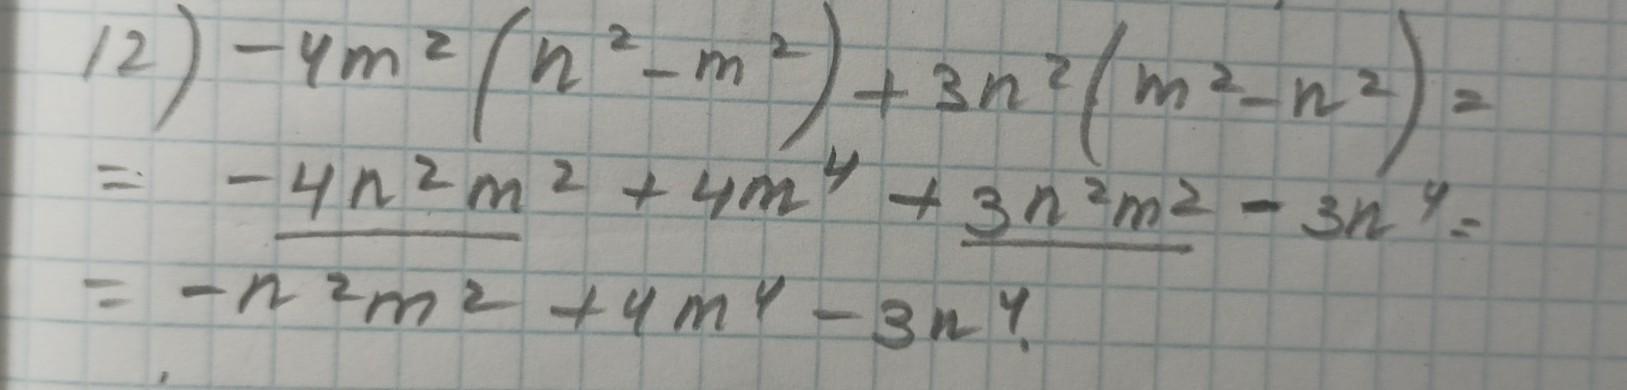 12) -4m²(n²-m²)+3n²(m²-n²)=
= -4n²m² + 4m⁴ + 3n²m² - 3n⁴=
= -n²m² +4m⁴ -3n⁴.